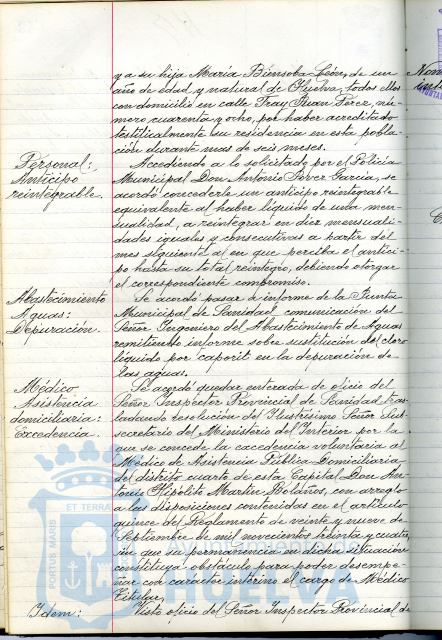 y a su hija María Bensoba León, de un
año de edad y natural de Huelva, todos ellos
con domicilio en calle Fray Juan Pérez, nú-
mero cuarenta y ocho, por haber acreditado
testificalmente su residencia en esta pobla-
ción durante mas de seis meses.
Personal:
Anticipo
reintegrable.
Accediendo a lo solicitado por el Policía
Municipal Don Antonio Pérez García, se
acordó concederle un anticipo reintegrable
equivalente al haber líquido de una men-
sualidad, a reintegrar en diez mensuali-
dades iguales y consecutivas a partir del
mes siguiente al en que perciba el antici-
po hasta su total reintegro, debiendo otorgar
el correspondiente compromiso.
Abastecimiento
Aguas:
Depuración.
Se acordó pasar a informe de la Junta
Municipal de Sanidad comunicación del
Señor Ingeniero del Abastecimiento de Aguas
remitiendo informe sobre sustitución del cloro
líquido por caporit en la depuración de
las aguas.
Médico
Asistencia
domiciliaria:
Excedencia.
Se acordó quedar enterada de oficio del
Señor Inspector Provincial de Sanidad tras-
ladando resolución del Ilustrísimo Señor Sub-
secretario del Ministerio del Interior por la
que se concede la excedencia voluntaria al
Médico de Asistencia Pública Domiciliaria
del distrito cuarto de esta Capital Don An-
tonio Hipólito Martín Bolaños, con arreglo
a las disposiciones contenidas en el artículo
quince del Reglamento de veinte y nueve de
Septiembre de mil novecientos treinta y cuatro,
sin que su permanencia en dicha situación
constituya obstáculo para poder desempe-
ñar con carácter interino el cargo de Médico
Titular.
Idem:
Visto oficio del Señor Inspector Provincial de
PORTUS MARIS ET TERRAE
Ayuntamiento de
HUELVA